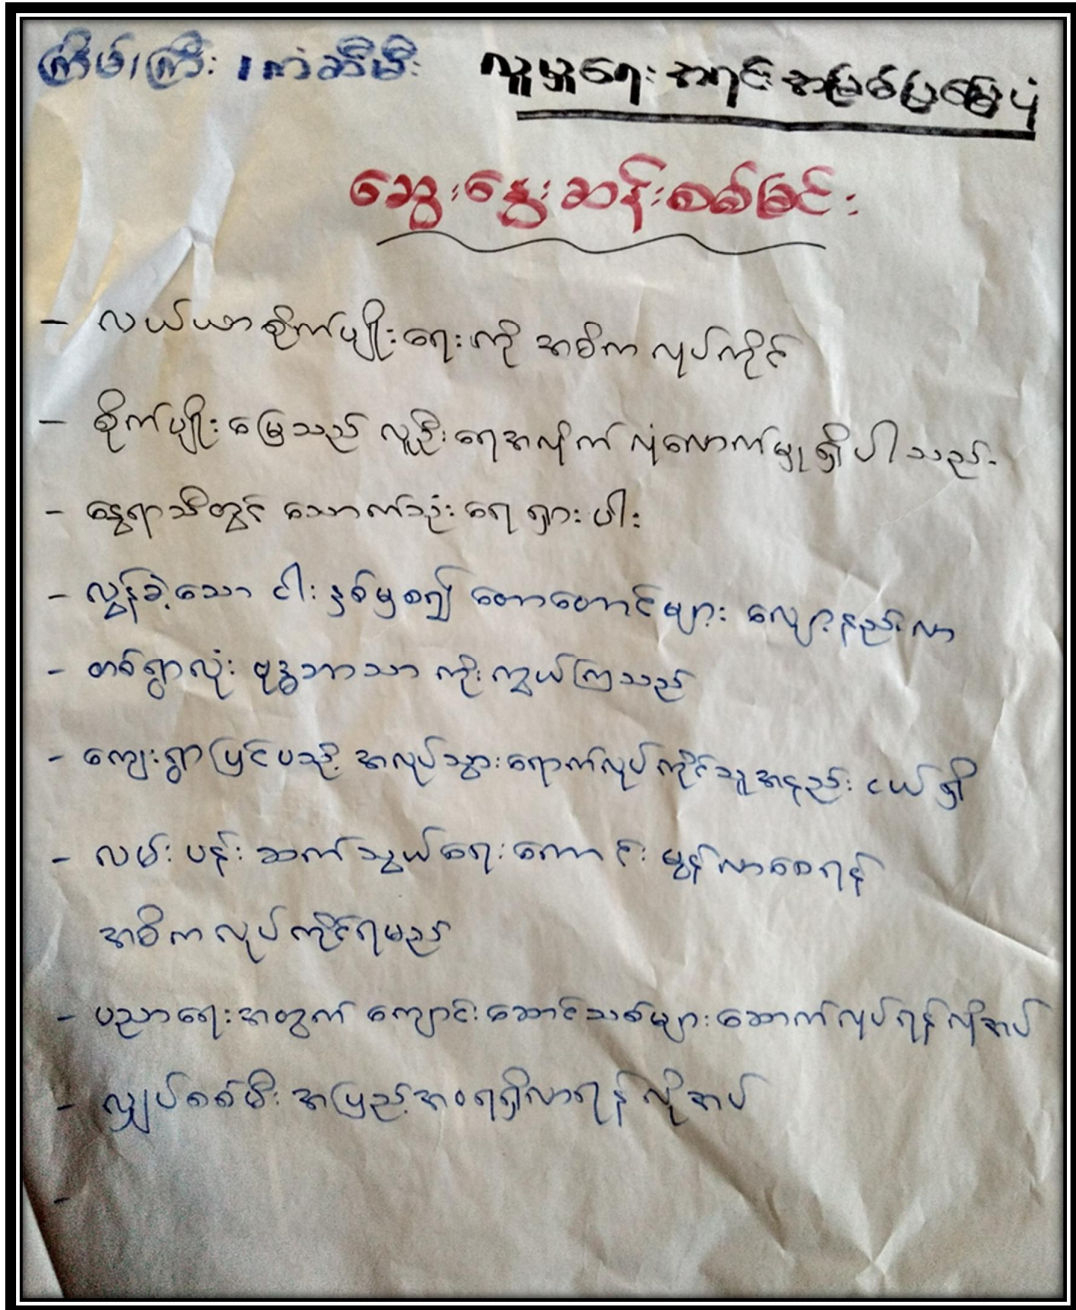 ကြိမ်ကြီး၊ကံဆီမီး လူမှုရေးအရင်းအမြစ်ပြမြေပုံ
ဆွေးနွေးဆန်းစစ်ခြင်း
- လယ်ယာစိုက်ပျိုးရေးကို အဓိက လုပ်ကိုင်
- စိုက်ပျိုးမြေသည် လူဦးရေအလိုက် လုံလောက်မှုရှိပါသည်
- နွေရာသီတွင် သောက်သုံးရေရှားပါး
- လွန်ခဲ့သော ငါးနှစ်မှစ၍ တောတောင်များ လျော့နည်းလာ
- တစ်ရွာလုံး ဗုဒ္ဓဘာသာ ကိုးကွယ်ကြသည်
- ကျေးရွာပြင်ပသို့ အလုပ်သွားရောက်လုပ်ကိုင်သူအနည်းငယ်ရှိ
- လမ်းပန်းဆက်သွယ်ရေးကောင်းမွန်လာစေရန်
အဓိကလုပ်ကိုင်ရမည်
- ပညာရေးအတွက် ကျောင်းဆောင်သစ်များဆောက်လုပ်ရန်လိုအပ်
- လျှပ်စစ်မီးအပြည့်အဝရရှိလာရန်လိုအပ်
-